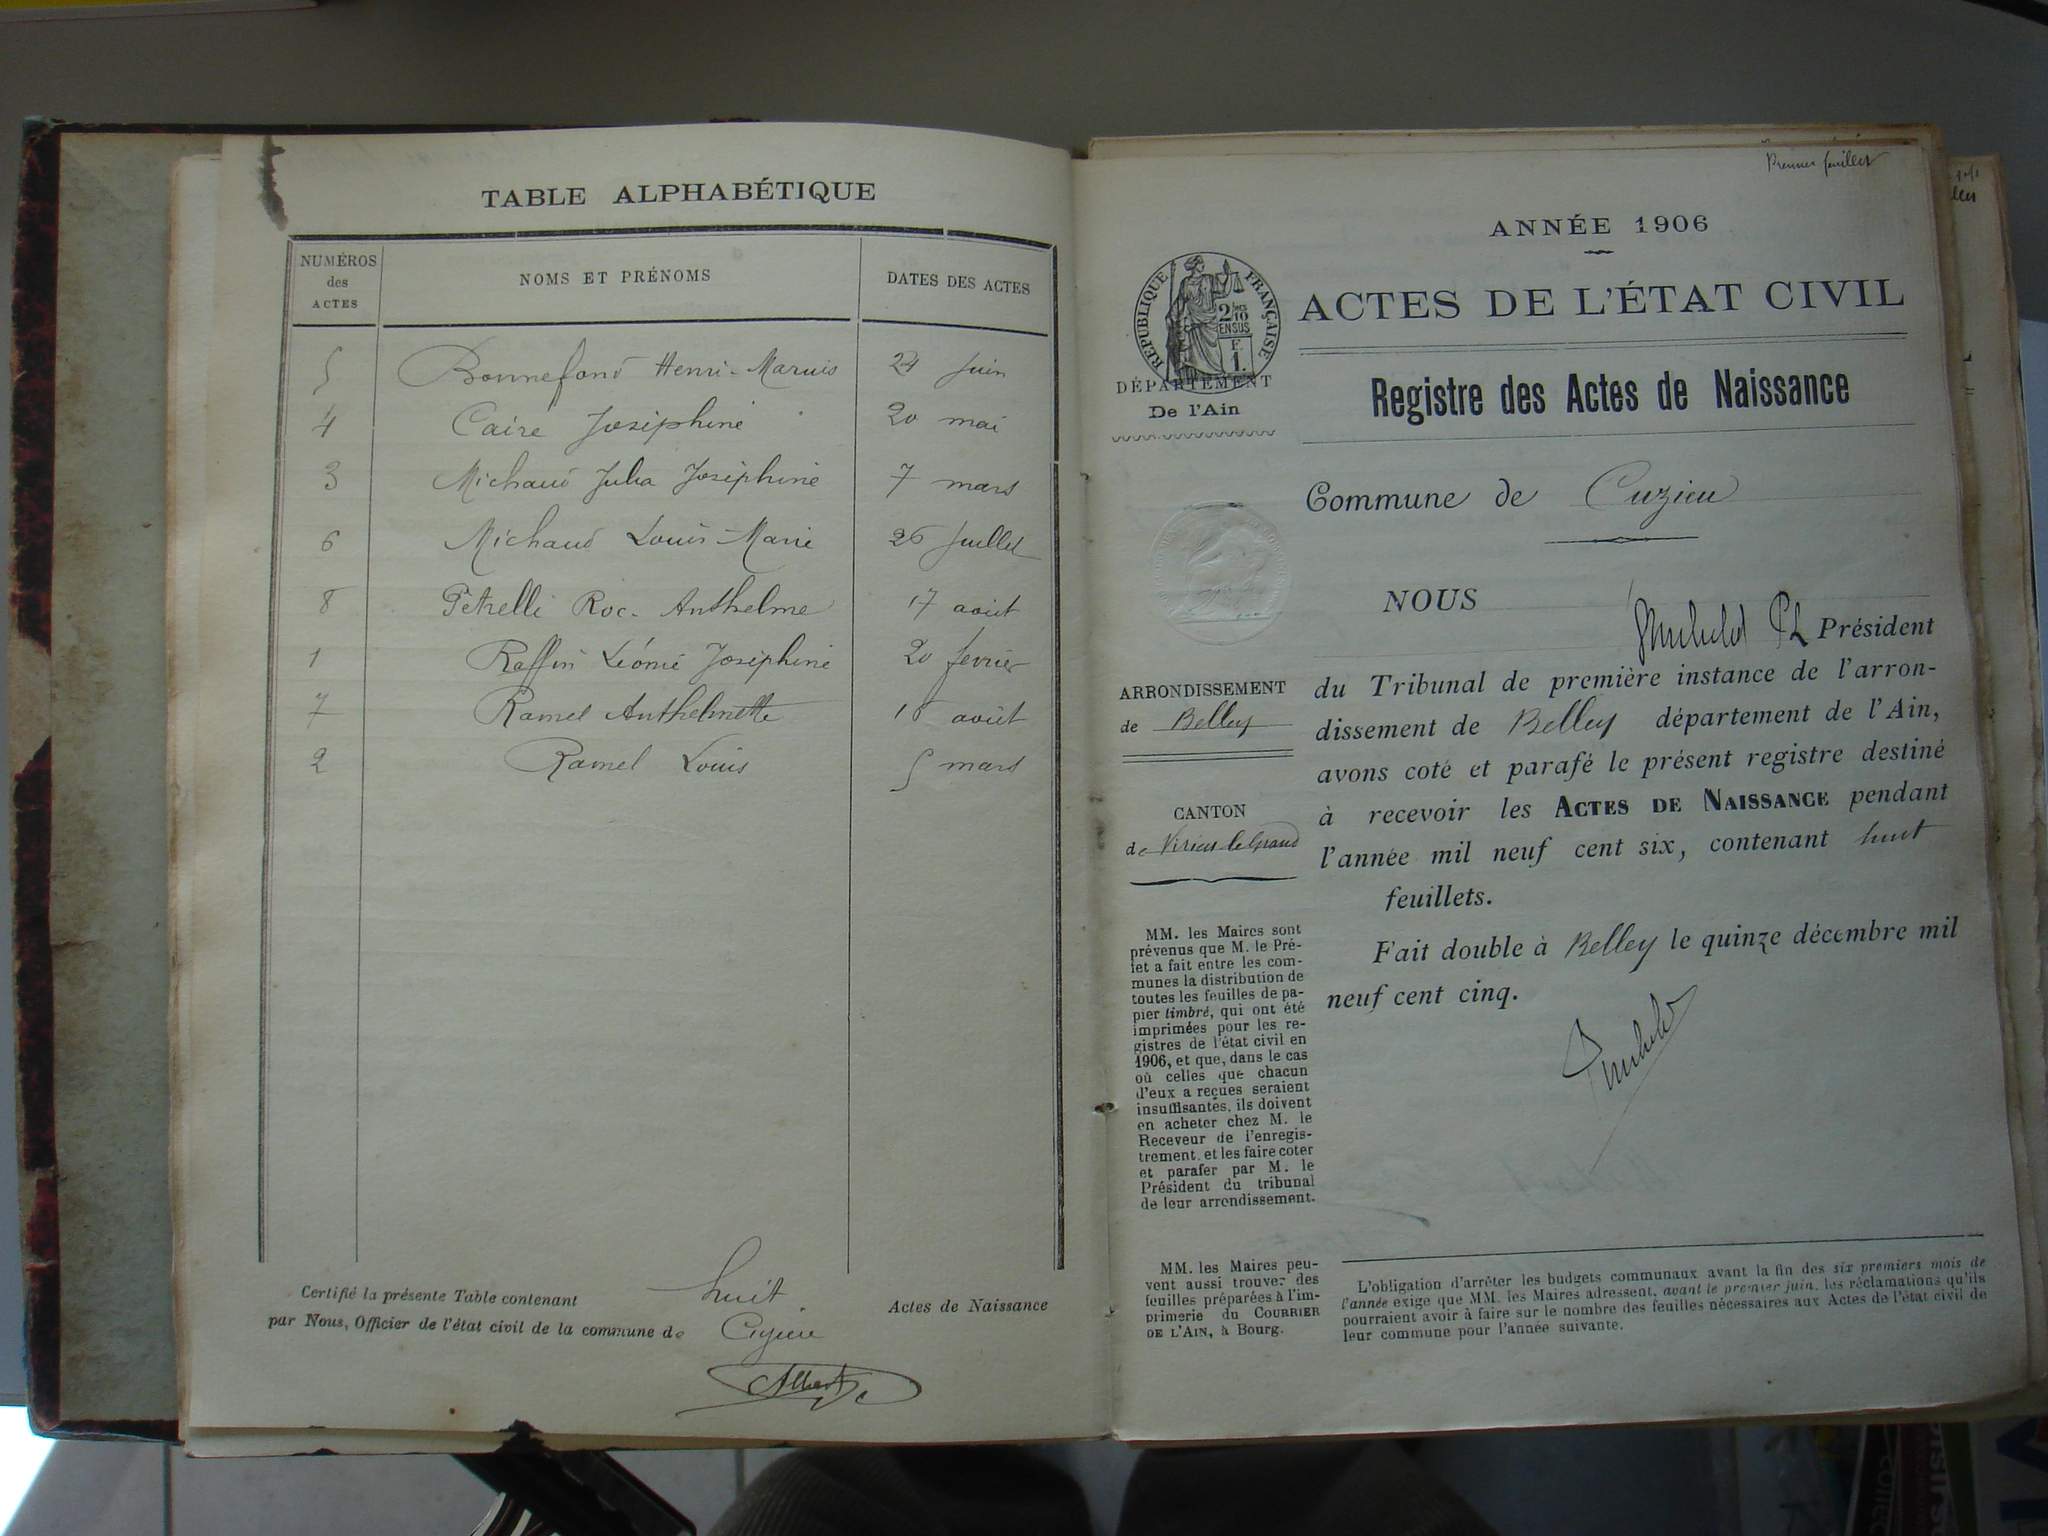 TABLE ALPHABÉTIQUE
NUMÉROS des ACTES
NOMS ET PRÉNOMS
DATES DES ACTES
5 Bonnefond Henri-Marius 24 juin
4 Caire Joséphine 20 mai
3 Michaud Julia Joséphine 7 mars
6 Michaud Louis-Marie 26 Juillet
8 Pétrelli Roc-Anthelme 17 août
1 Raffin Léonie Joséphine 20 février
7 Ramel Anthelmette août
2 Ramel Louis 5 mars
Certifié la présente Table contenant huit Actes de Naissance
par Nous, Officier de l'état civil de la commune de Cuzieu
Premier feuillet
ANNÉE 1906
RÉPUBLIQUE FRANÇAISE
2/10
EN SUS
F.
1.
ACTES DE L'ÉTAT CIVIL
DÉPARTEMENT
De l'Ain
Registre des Actes de Naissance
Commune de Cuzieu
NOUS
Président
du Tribunal de première instance de l'arron-
dissement de Belley département de l'Ain,
avons coté et parafé le présent registre destiné
à recevoir les ACTES DE NAISSANCE pendant
l'année mil neuf cent six, contenant huit
feuillets.
Fait double à Belley le quinze décembre mil
neuf cent cinq.
ARRONDISSEMENT
de Belley
CANTON
de Virieu-le-Grand
MM. les Maires sont
prévenus que M. le Pré-
fet a fait entre les com-
munes la distribution de
toutes les feuilles de pa-
pier timbré, qui ont été
imprimées pour les re-
gistres de l'état civil en
1906, et que, dans le cas
où celles que chacun
d'eux a reçues seraient
insuffisantes, ils doivent
en acheter chez M. le
Receveur de l'enregis-
trement, et les faire coter
et parafer par M. le
Président du tribunal
de leur arrondissement.
MM. les Maires peu-
vent aussi trouver des
feuilles préparées à l'im-
primerie du COURRIER
DE L'AIN, à Bourg.
L'obligation d'arrêter les budgets communaux avant la fin des six premiers mois de
l'année exige que MM. les Maires adressent, avant le premier juin, les réclamations qu'ils
pourraient avoir à faire sur le nombre des feuilles nécessaires aux Actes de l'état civil de
leur commune pour l'année suivante.